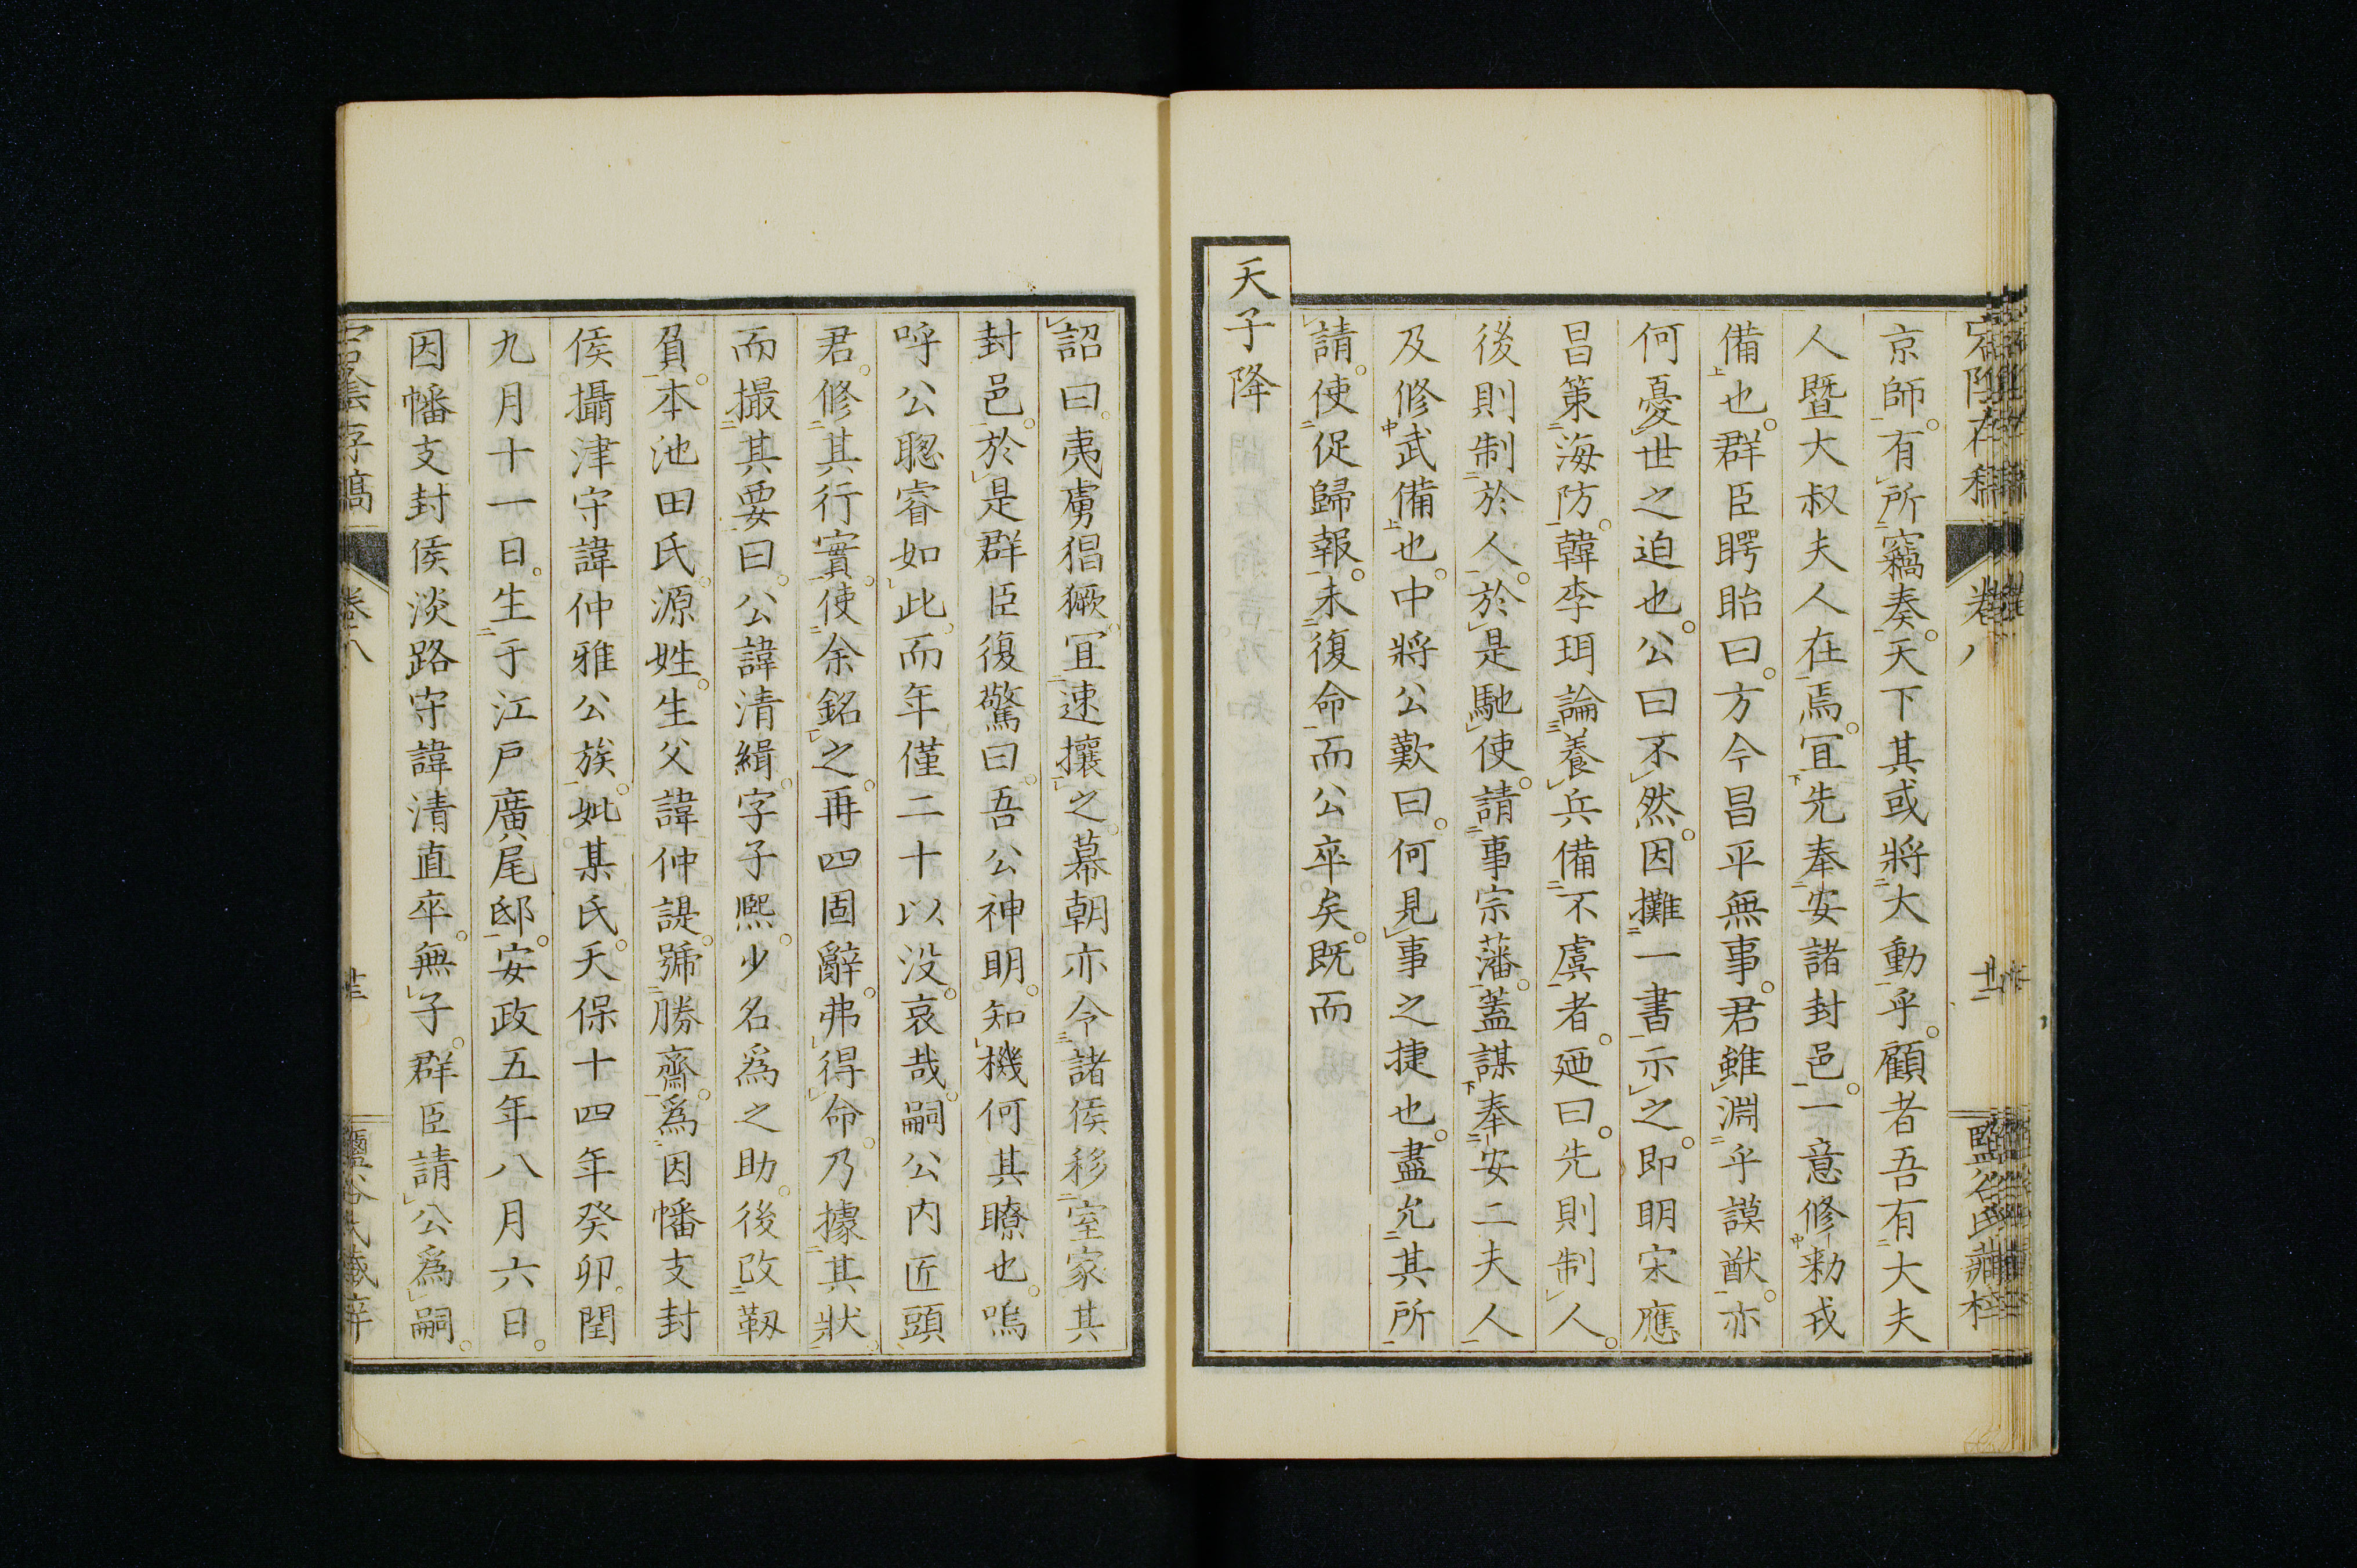 京師。有所竊奏。天下其或將大動乎。顧者吾有大夫
人曁大叔夫人在焉。冝先奉安諸封邑。一意修勑戎
備也。群臣睯眙曰。方今昌平無事。君雖淵乎謨猷。亦
何憂世之迫也。公曰不然。因攤一書示之。即明宋應
昌策海防。韓李珥論養兵備不虞者。廼曰。先則制人。
後則制於人。於是馳使。請事宗藩。蓋謀奉安二夫人
及修武備也。中將公歎曰。何見事之捷也。盡允其所
請。使促歸報。未復命而公卒矣。既而
天子降
詔曰。夷虜猖獗。冝速攘之。幕朝亦令諸侯移室家其
封邑。於是群臣復驚曰。吾公神明。知機何其瞭也。嗚
呼公聡睿如此。而年僅二十以没。哀哉。嗣公内匠頭
君。修其行實。使余銘之。再四固辭。弗得命。乃據其狀。
而撮其要曰。公諱清緝。字子熈。少名爲之助。後改靱
負。本池田氏。源姓。生父諱仲諟。號勝齋。爲因幡支封
侯攝津守諱仲雅公族。妣某氏。天保十四年癸卯。閏
九月十一日。生于江戸廣尾邸。安政五年八月六日。
因幡支封侯淡路守諱清直卒。無子。群臣請公爲嗣。
卷八